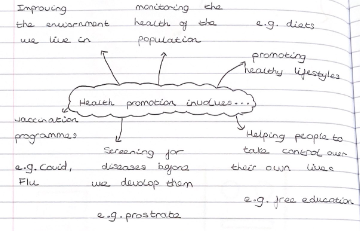 Improving
the enviornment
we live in
monitoring the
health of the
population
e.g. diets
promoting
healthy lifestyles
Health promotion involves...
vaccination
programmes
e.g. Covid,
Flu
Screening for
diseases before
we develop them
e.g. prostrate
Helping people to
take control over
their own lives
e.g. free education